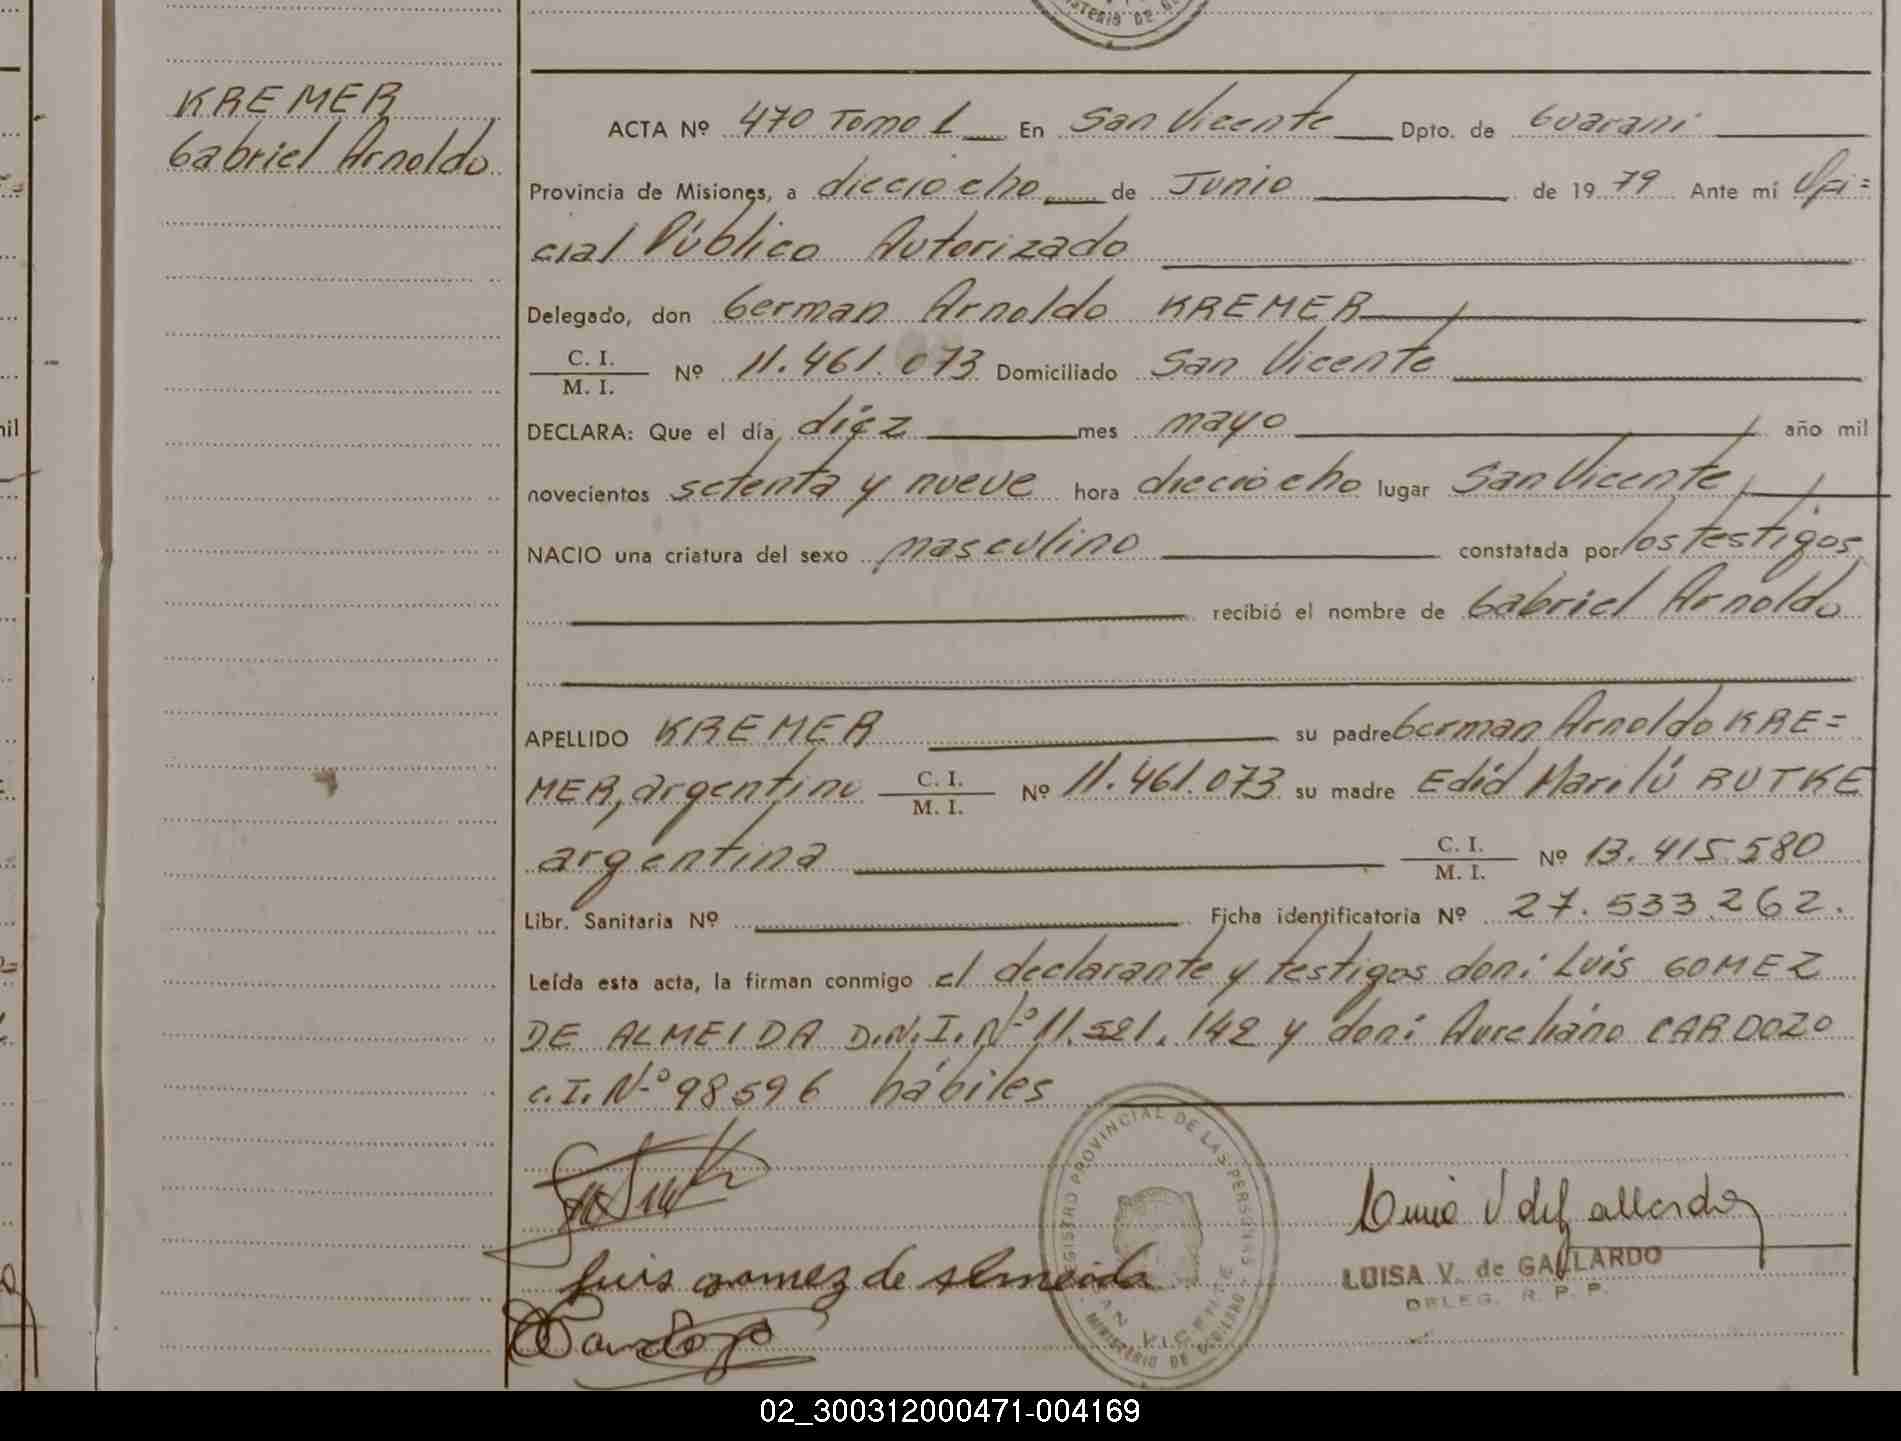 MINISTERIO DE GO
KREMER
Gabriel Arnoldo
ACTA Nº 470 Tomo I En San Vicente Dpto. de Guaraní
Provincia de Misiones, a dieciocho de Junio de 1979 Ante mí Ofi=
cial Público Autorizado
Delegado, don German Arnoldo KREMER
C. I.
M. I. Nº 11.461.073 Domiciliado San Vicente
DECLARA: Que el día diez mes mayo año mil
novecientos setenta y nueve hora dieciocho lugar San Vicente
NACIO una criatura del sexo masculino constatada por los testigos
recibió el nombre de Gabriel Arnoldo
APELLIDO KREMER su padre German Arnoldo KRE=
MER, argentino C. I. M. I. Nº 11.461.073 su madre Edid Marilú RUTKE
argentina C. I. M. I. Nº 13.415.580
Libr. Sanitaria Nº Ficha identificatoria Nº 27.533.262.
Leída esta acta, la firman conmigo el declarante y testigos don: Luis GOMEZ
DE ALMEIDA D.N.I. Nº 11.521.142 y don: Aureliano CARDOZO
C.I. Nº 98596 hábiles
REGISTRO PROVINCIAL DE LAS PERSONAS
SAN VICENTE
MINISTERIO DE GOBIERNO
Luis gomez de Almeida
Cardozo
Luisa V de Gallardo
LUISA V. de GALLARDO
DELEG. R. P. P.
nil
02_300312000471-004169